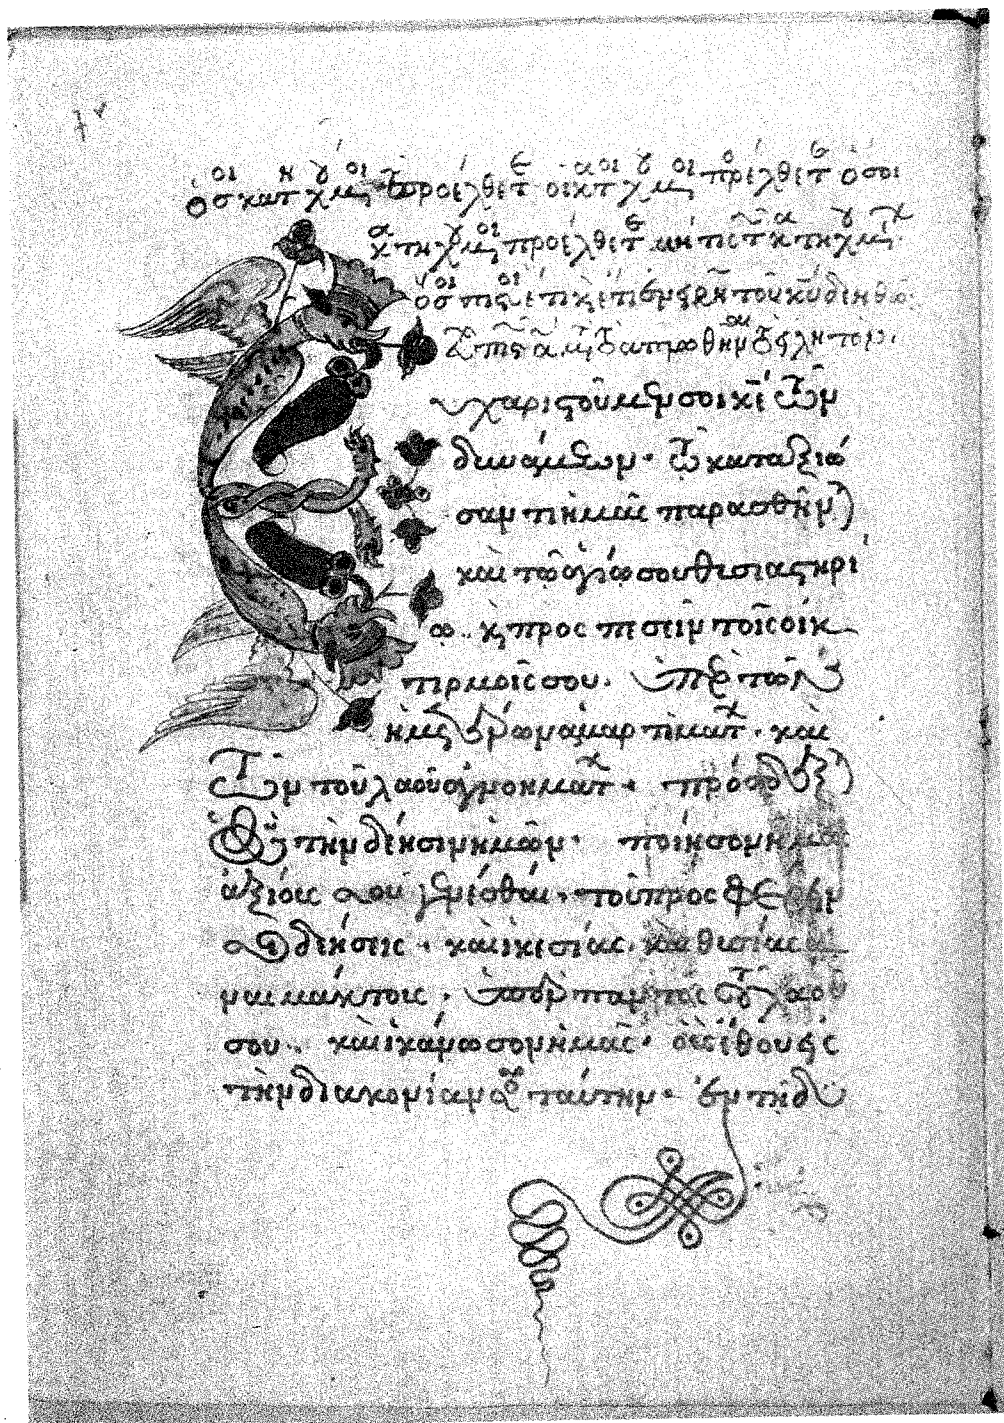 ὅσοι κατηχούμενοι προέλθετε οἱ κατηχούμενοι προέλθετε ὅσοι
κατηχούμενοι προέλθετε μή τις τῶν κατηχουμένων
ὅσοι πιστοὶ ἔτι κ ἔτι ἐν εἰρήνῃ τοῦ κυ δεηθῶ
εὐχὴ πιστῶν α μετὰ τὸ ἁπλωθῆναι τὸ εἰλητόν.
Εὐχαριστοῦμέν σοι κε ὁ θς τῶν
δυνάμεων· τῷ καταξιώ
σαντι ἡμᾶς παραστῆναι
καὶ τῷ ἁγίῳ σου θυσιαστηρί
ω. κ προσπεσεῖν τοῖς οἰκ
τιρμοῖς σου. ὑπὲρ τῶν
ἡμετέρων ἁμαρτημάτων. καὶ
τῶν τοῦ λαοῦ ἀγνοημάτων. πρόσδεξαι
ὁ θς τὴν δέησιν ἡμῶν. ποίησον ἡμᾶς
ἀξίους σου γενέσθαι. τοῦ προσφέρειν
σοι δεήσεις. καὶ ἱκεσίας. καὶ θυσίας ἀ
ναιμάκτους. ὑπὲρ παντὸς τοῦ λαοῦ
σου. καὶ ἱκάνωσον ἡμᾶς. οὓς ἔθου εἰς
τὴν διακονίαν σου ταύτην. ἐν τῇ δυ